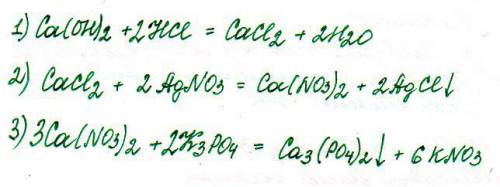 1) Ca(OH)2 + 2HCl = CaCl2 + 2H2O
2) CaCl2 + 2 AgNO3 = Ca(NO3)2 + 2AgCl↓
3) 3Ca(NO3)2 + 2K3PO4 = Ca3(PO4)2↓ + 6 KNO3